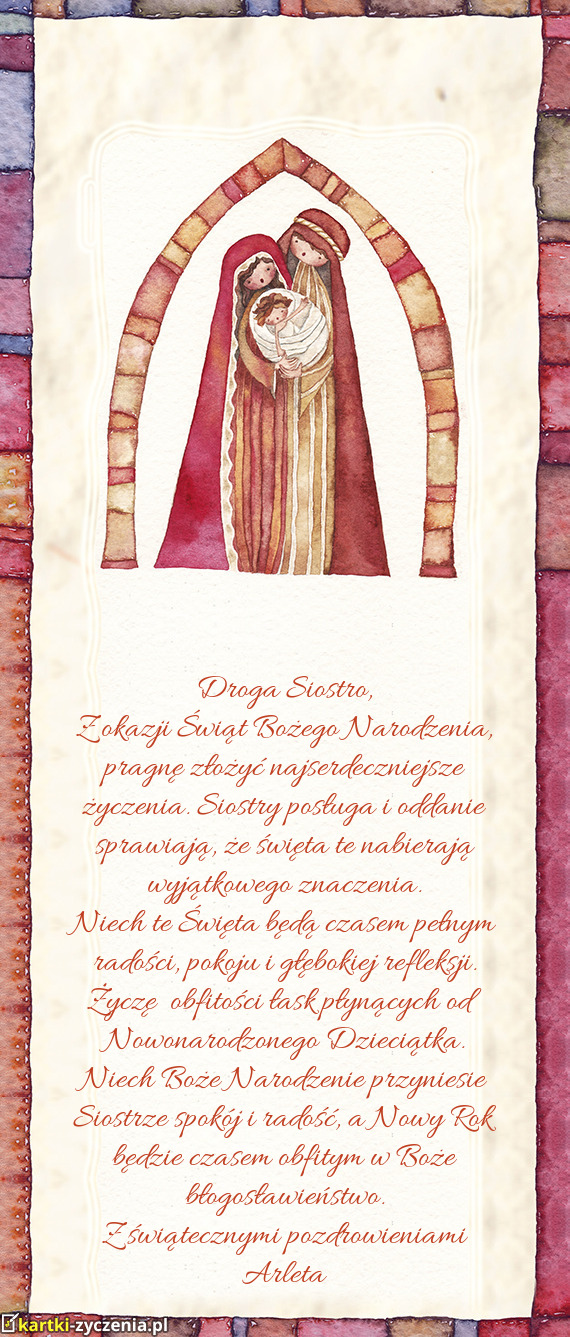 Droga Siostro,
Z okazji Świąt Bożego Narodzenia,
pragnę złożyć najserdeczniejsze
życzenia. Siostry posługa i oddanie
sprawiają, że święta te nabierają
wyjątkowego znaczenia.
Niech te Święta będą czasem pełnym
radości, pokoju i głębokiej refleksji.
Życzę obfitości łask płynących od
Nowonarodzonego Dzieciątka.
Niech Boże Narodzenie przyniesie
Siostrze spokój i radość, a Nowy Rok
będzie czasem obfitym w Boże
błogosławieństwo.
Z świątecznymi pozdrowieniami
Arleta
kartki-zyczenia.pl